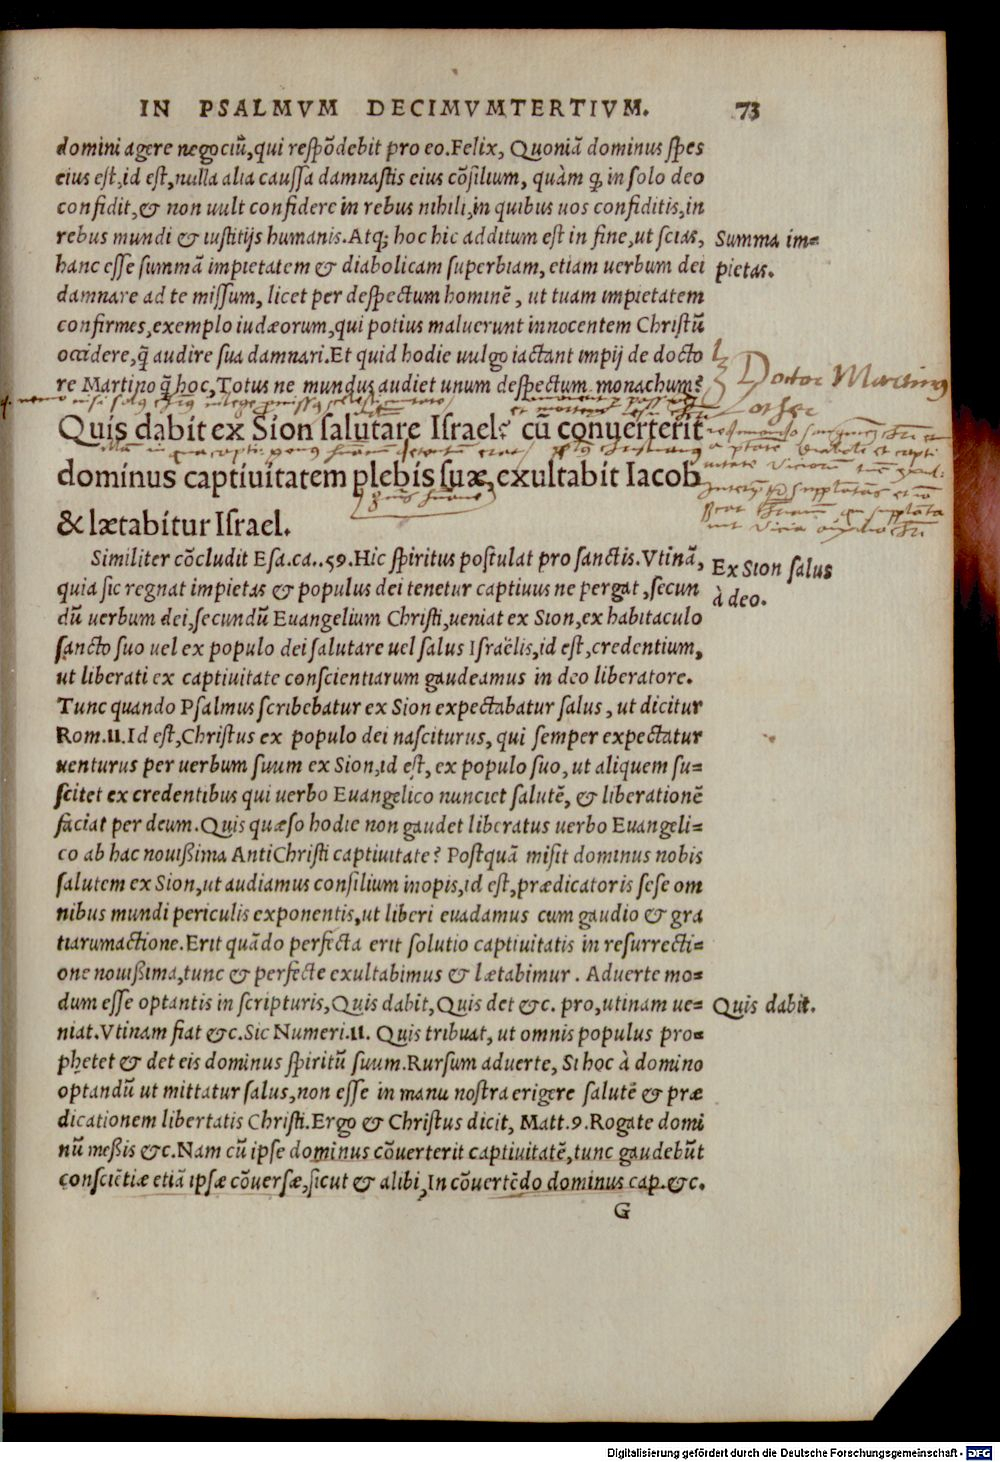 IN PSALMVM DECIMVMTERTIVM. 73
domini agere negociũ, qui respõdebit pro eo. Felix, Quoniã dominus spes
eius est, id est, nulla alia caussa damnastis eius cõsilium, quàm q, in solo deo
confidit, & non uult confidere in rebus nihili, in quibus uos confiditis, in
rebus mundi & iustitijs humanis. Atq; hoc hic additum est in fine, ut scias,
Summa im=
hanc esse summã impietatem & diabolicam superbiam, etiam uerbum dei
pietas.
damnare ad te missum, licet per despectum hominẽ, ut tuam impietatem
confirmes, exemplo iudæorum, qui potius maluerunt innocentem Christũ
occidere, q̃ audire sua damnari. Et quid hodie uulgo iactant impij de docto
re Martino q̃ hoc, Totus ne mundus audiet unum despectum monachum?
Doctor Martinus
Luther
Quis dabit ex Sion salutare Israel? cũ conuerterit
dominus captiuitatem plebis suæ, exultabit Iacob
& lætabitur Israel.
Similiter cõcludit Esa. ca..59. Hic spiritus postulat pro sanctis. Vtinã,
Ex Sion salus
quia sic regnat impietas & populus dei tenetur captiuus ne pergat, secun
à deo.
dũ uerbum dei, secundũ Euangelium Christi, ueniat ex Sion, ex habitaculo
sancto suo uel ex populo dei salutare uel salus Israëlis, id est, credentium,
ut liberati ex captiuitate conscientiarum gaudeamus in deo liberatore.
Tunc quando Psalmus scribebatur ex Sion expectabatur salus, ut dicitur
Rom. 11. Id est, Christus ex populo dei nasciturus, qui semper expectatur
uenturus per uerbum suum ex Sion, id est, ex populo suo, ut aliquem su=
scitet ex credentibus qui uerbo Euangelico nunciet salutẽ, & liberationẽ
faciat per deum. Quis quæso hodie non gaudet liberatus uerbo Euangeli=
co ab hac nouißima AntiChristi captiuitate? Postquã misit dominus nobis
salutem ex Sion, ut audiamus consilium inopis, id est, prædicatoris sese om
nibus mundi periculis exponentis, ut liberi euadamus cum gaudio & gra
tiarumactione. Erit quãdo perfecta erit solutio captiuitatis in resurrecti=
one nouißima, tunc & perfecte exultabimus & lætabimur. Aduerte mo=
dum esse optantis in scripturis, Quis dabit, Quis det &c. pro, utinam ue=
Quis dabit.
niat. Vtinam fiat &c. Sic Numeri. 11. Quis tribuat, ut omnis populus pro=
phetet & det eis dominus spiritũ suum. Rursum aduerte, Si hoc à domino
optandũ ut mittatur salus, non esse in manu nostra erigere salutẽ & præ
dicationem libertatis Christi. Ergo & Christus dicit, Matt. 9. Rogate domi
nũ meßis &c. Nam cũ ipse dominus cõuerterit captiuitatẽ, tunc gaudebũt
consciẽtiæ etiã ipsæ cõuersæ, sicut & alibi, In cõuertẽdo dominus cap. &c.
G
Digitalisierung gefördert durch die Deutsche Forschungsgemeinschaft - DFG